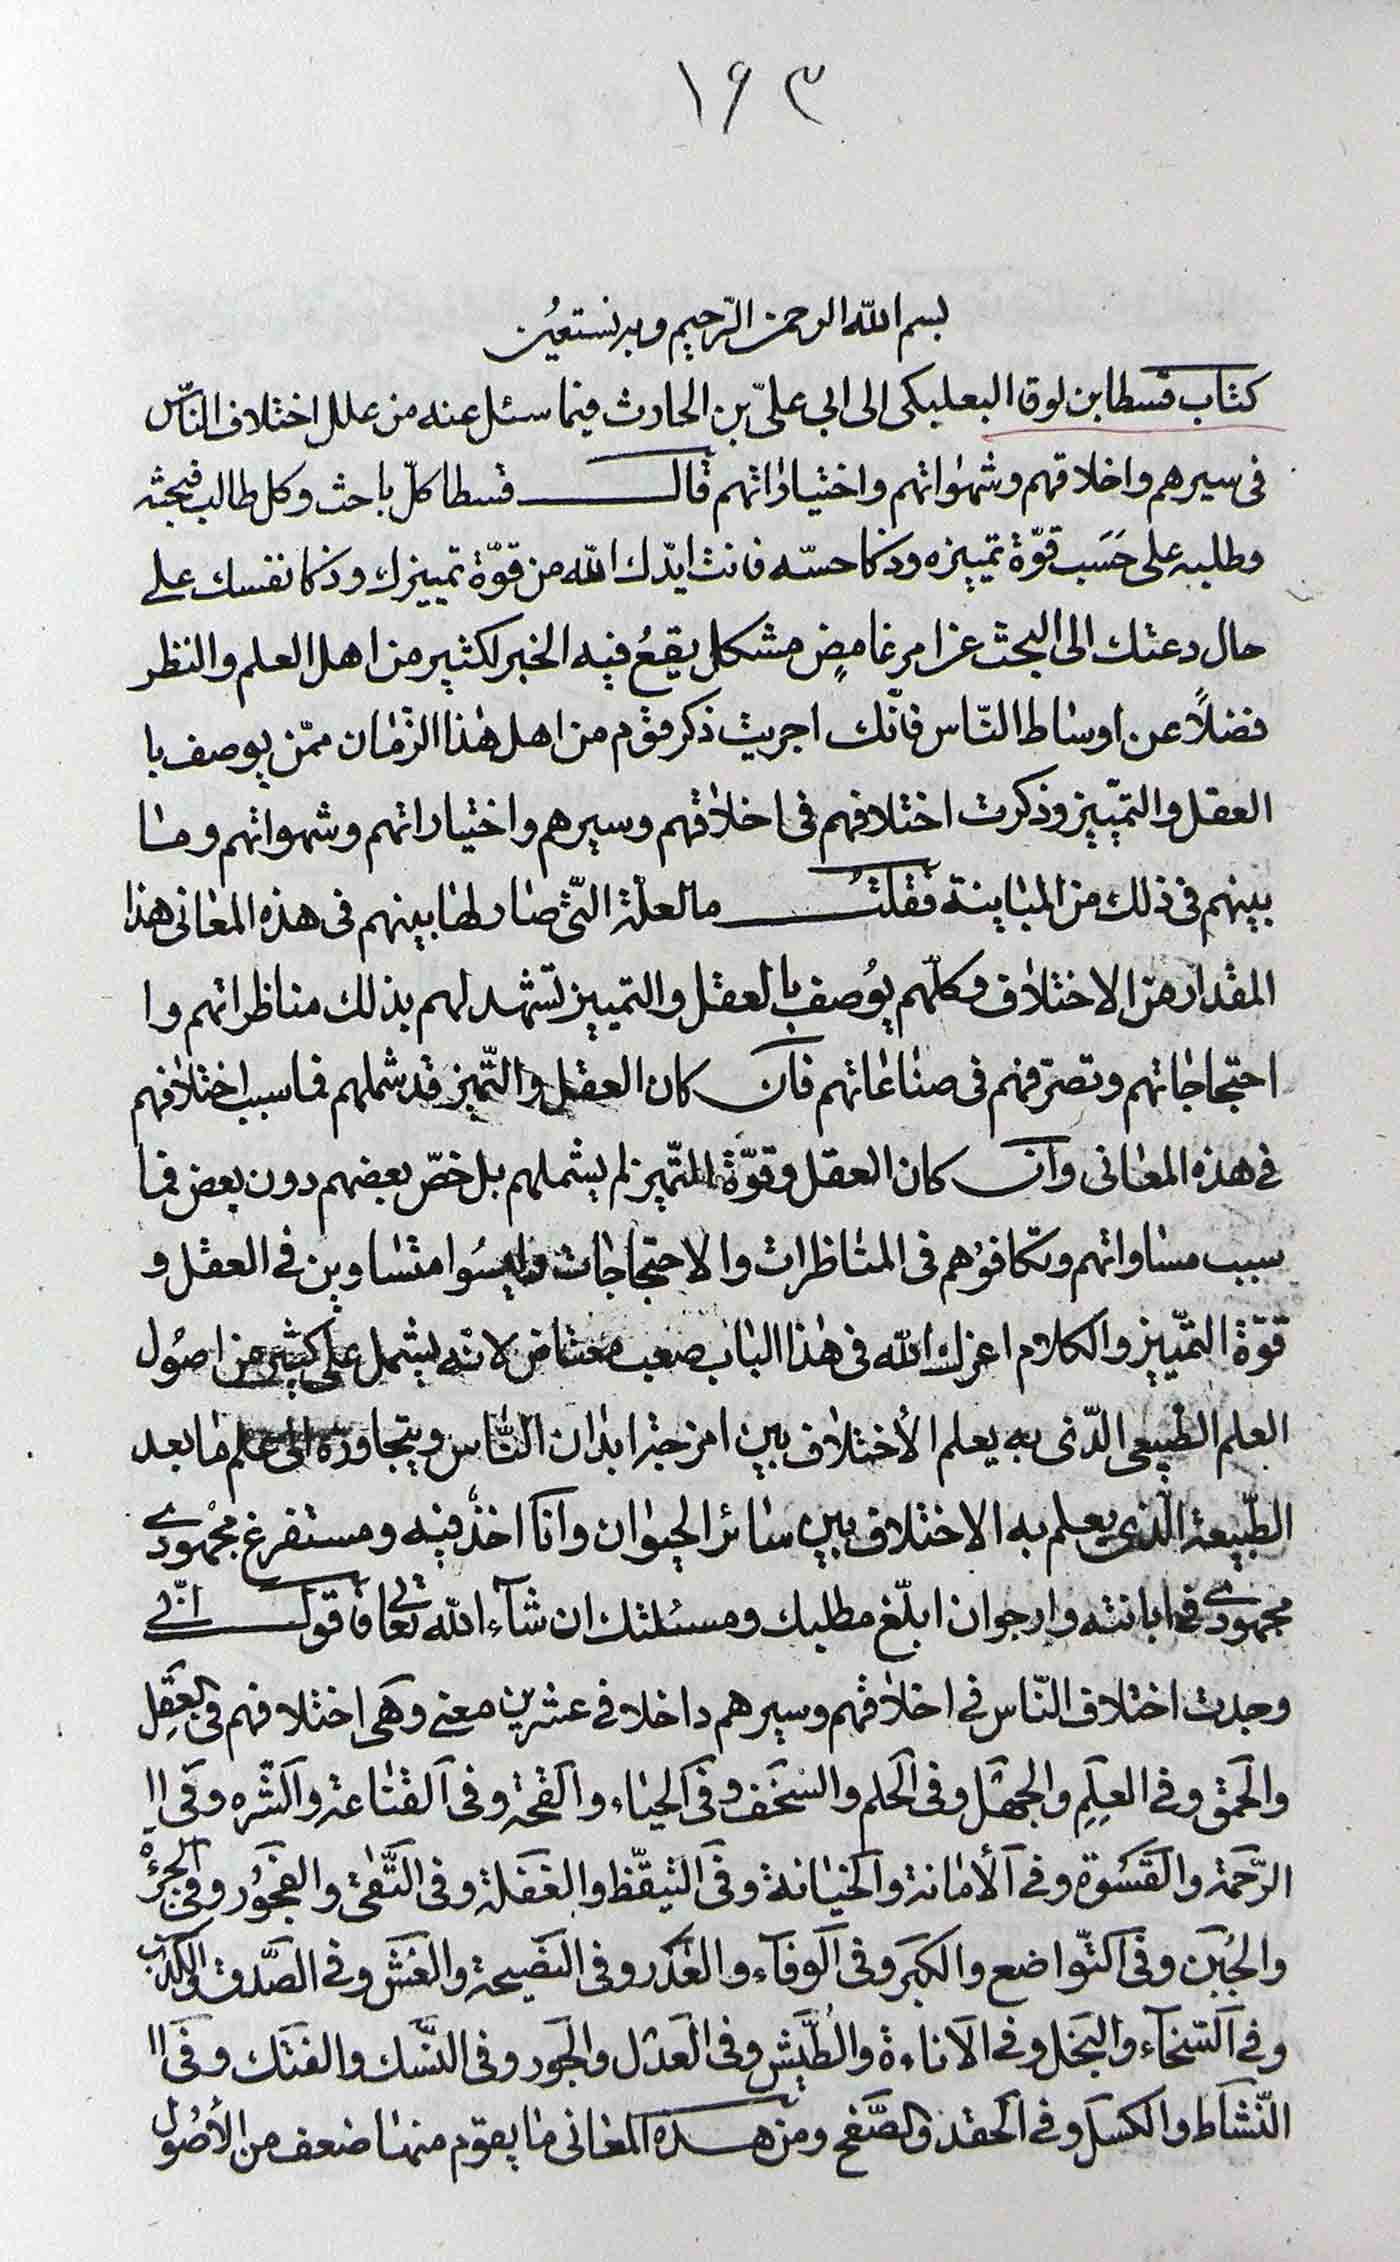 ١٦٣
بسم الله الرحمن الرّحيم وبه نستعين
كتاب قسطا بن لوقا البعلبكى الى ابى علىّ بن الحارث فيما سئل عنه من علل اختلاف النّاس
فى سيرهم واخلاقهم وشهواتهم واختياراتهم قال قسطا كلّ باحث وكل طالب فبحثه
وطلبه على حَسَب قوّة تمييزه وذكا حسّه فانت ايّدك الله من قوّة تمييزك وذكا نفسك على
حال دعتك الى البحث عن امر غامضٍ مشكل يقعُ فيه الخبر لكثير من اهل العلم والنظر
فضلاً عن اوساط النّاس فانّك اجريت ذكر قوم من اهل هذا الزّمان ممّن يوصف با
العقل والتمّييز وذكرت اختلافهم فى اخلاقهم وسيرهم واختياراتهم وشهواتهم وما
بينهم فى ذلك من المباينة فقلتُ ما لعلّة الّتى صار لها بينهم فى هذه المعانى هذا
المقدار من الاختلاف وكلّهم يوُصف بالعقل والتمييز تشهد لهم بذلك مناظراتهم وا
احتجاجاتهم وتصرّفهم فى صناعاتهم فان كان العقل والتّميز قد شملهم فما سبب اختلافهم
فى هذه المعانى وان كان العقل وقوّة التّميز لم يشملهم بل خصّ بعضهم دون بعض فما
سبب مساواتهم وتكافوُهم فى المناظرات والاحتجاجات وليسُوا متساوين فى العقل و
قوّة التمّييز والكلام اعزك الله فى هذا الباب صعب معتاص لانّه يشمل على كثير من اصُول
العلم الطّبيعى الّذى به يعلم الأختلاف بين امزجة ابدان النّاس ويتجاوزه الى علم ما بعد
الطّبيعة الّذى يعلم به الاختلاف بين سائر الحيوان وانا اخذ فيه ومستفرغ مجهودى
مجهودى فى ابانته وارجو ان ابلّغ مطلبك ومسئلتك ان شآء الله تعا فاقول انّى
وجدت اختلاف النّاس فى اخلاقهم وسيرهم داخلا فى عشرين معنى وهى اختلافهم فى العقِل
والحمق وفى العِلِم والجهَل وفى الحلم والسَخَف وفى الحيَاء والقحة وفى القناعة والشّره وفى ا
الرّحمة والقَسَوة وفى الأمانة والخيانة وفى التيقّظ والغَفَلة وفى التَّقى والفجَوُر وفى الجرُءْة
والجُبَن وفى التّواضع والكبَر وفى الوفآء والغدَر وفى النصَيحة والغشَ وفى الصَّدق والكذب
وفى السّخآء والبَخل وفى الاناءة والطَّيَش وفى العَدَل والجَور وفى النَّسك والفتك وفى ا
النّشاط والكسَل وفى الحقد والصَّفح ومن هذه المعانى ما يقوم منهما ضعف من الأصُول